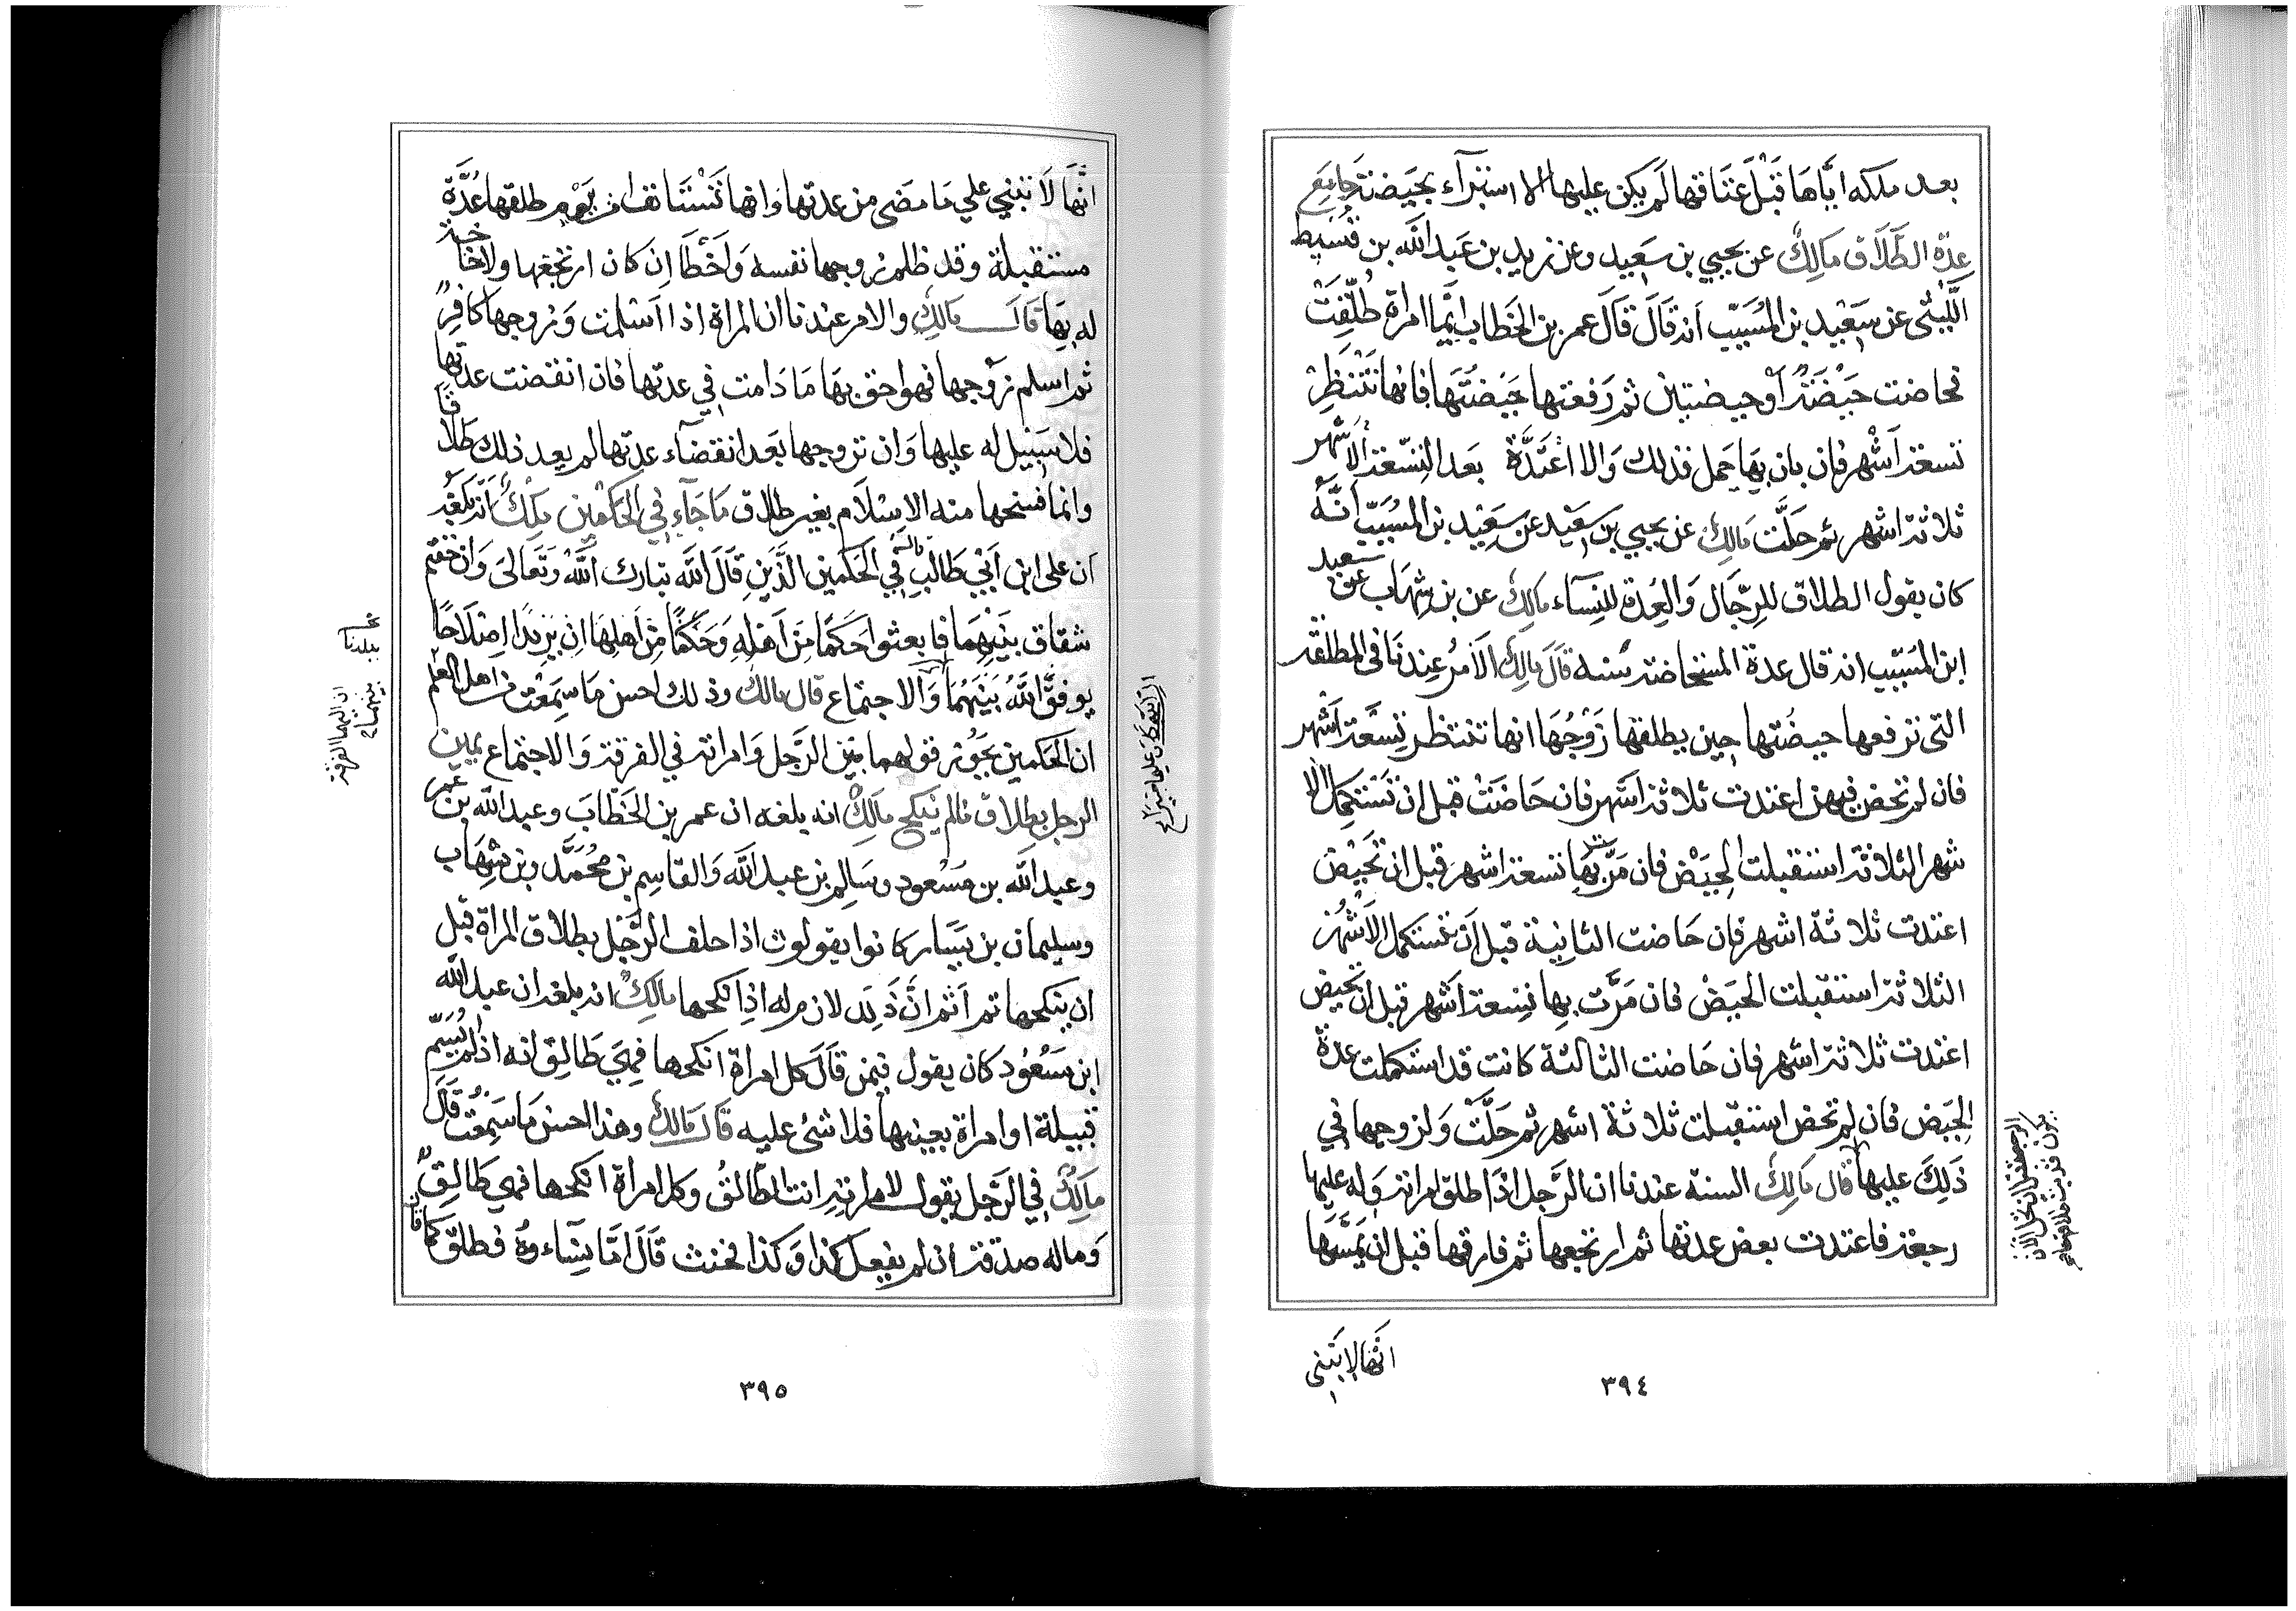 بعد ملكه اياها قبل عتاقها لم يكن عليها الا استبرآء بحيضة جامع
عدة الطلاق مالك عن يحيي بن سعيد وعن زيد بن عبد الله بن قسيط
الليثي عن سعيد بن المسيب انه قال قال عمر بن الخطاب ايما امراة طلقت
فحاضت حيضة او حيضتين ثم رفعتها حيضتها فانها تنتظر
تسعة اشهر فان بان بها حمل فذلك والا اعتدة بعد التسعة الاشهر
ثلاثة اشهر ثم حلت مالك عن يحيي بن سعيد عن سعيد بن المسيب انه
كان يقول الطلاق للرجال والعدة للنساء مالك عن بن شهاب عن سعيد
ابن المسيب انه قال عدة المستحاضة سنة قال مالك الامر عندنا في المطلقة
التي ترفعها حيضتها حين يطلقها زوجها انها تنتظر تسعة اشهر
فان لم تحض فيهن اعتدت ثلاثة اشهر فان حاضت قبل ان تستكمل الا
شهر الثلاثة استقبلت الحيض فان مرت بها تسعة اشهر قبل ان تحيض
اعتدت ثلاثة اشهر فان حاضت الثانية قبل ان تستكمل الاشهر
الثلاثة استقبلت الحيض فان مرت بها تسعة اشهر قبل ان تحيض
اعتدت ثلاثة اشهر فان حاضت الثالثة كانت قد استكملت عدة
الحيض فان لم تحض استقبلت ثلاثة اشهر ثم حلت ولزوجها في
ذلك عليها قال مالك السنة عندنا ان الرجل اذا طلق امراته وله عليها
رجعة فاعتدت بعض عدتها ثم ارتجعها ثم فارقها قبل ان يمسها
الرجعة قبل ان تحل الا ان
يكون قد بت طلاقها
انها لا تبني
٣٩٤
انها لا تبني علي ما مضى من عدتها وانها تستانف من يوم طلقها عدة
مستقبلة وقد ظلم زوجها نفسه واخطا ان كان ارتجعها ولا حاجة
له بها قال مالك والامر عندنا ان المراة اذا اسلمت وزوجها كافر
ثم اسلم زوجها فهو احق بها ما دامت في عدتها فان انقضت عدتها
فلا سبيل له عليها وان تزوجها بعد انقضآء عدتها لم يعد ذلك طلاقا
وانما فسخها منه الاسلام بغير طلاق ما جآء في الحكمين ملك انه بلغه
ان علي ابن ابي طالب قال في الحكمين الذين قال الله تبارك الله وتعالى وان خفتم
شقاق بينهما فابعثوا حكما من اهله وحكما من اهلها ان يريدا اصلاحا
يوفق الله بينهما والاجتماع قال مالك وذلك احسن ما سمعت من اهل العلم
ان الحكمين يجوز قولهما بين الرجل وامراته في الفرقة والاجتماع يمين
الرجل بطلاق مالم ينكح مالك انه بلغه ان عمر بن الخطاب وعبد الله بن عمر
وعبد الله بن مسعود وسالم بن عبد الله والقاسم بن محمد وبن شهاب
وسليمان بن يسار كانوا يقولون اذا حلف الرجل بطلاق المراة قبل
ان ينكحها ثم اثم ان ذلك لازم له اذا نكحها مالك انه بلغه ان عبد الله
ابن مسعود كان يقول فيمن قال كل امراة انكحها فهي طالق انه اذا لم يسم
قبيلة او امراة بعينها فلا شئ عليه قال مالك وهذا احسن ما سمعت قال
مالك في الرجل يقول لامراته انت الطالق وكل امراة انكحها فهي طالق
وماله صدقة ان لم يفعل كذا وكذا فحنث قال اما نساءوه فطلق كما قال
ان الله كان عليما خبيرا
ببلدنا
ان اليهما الفرقة
بينهما
٣٩٥